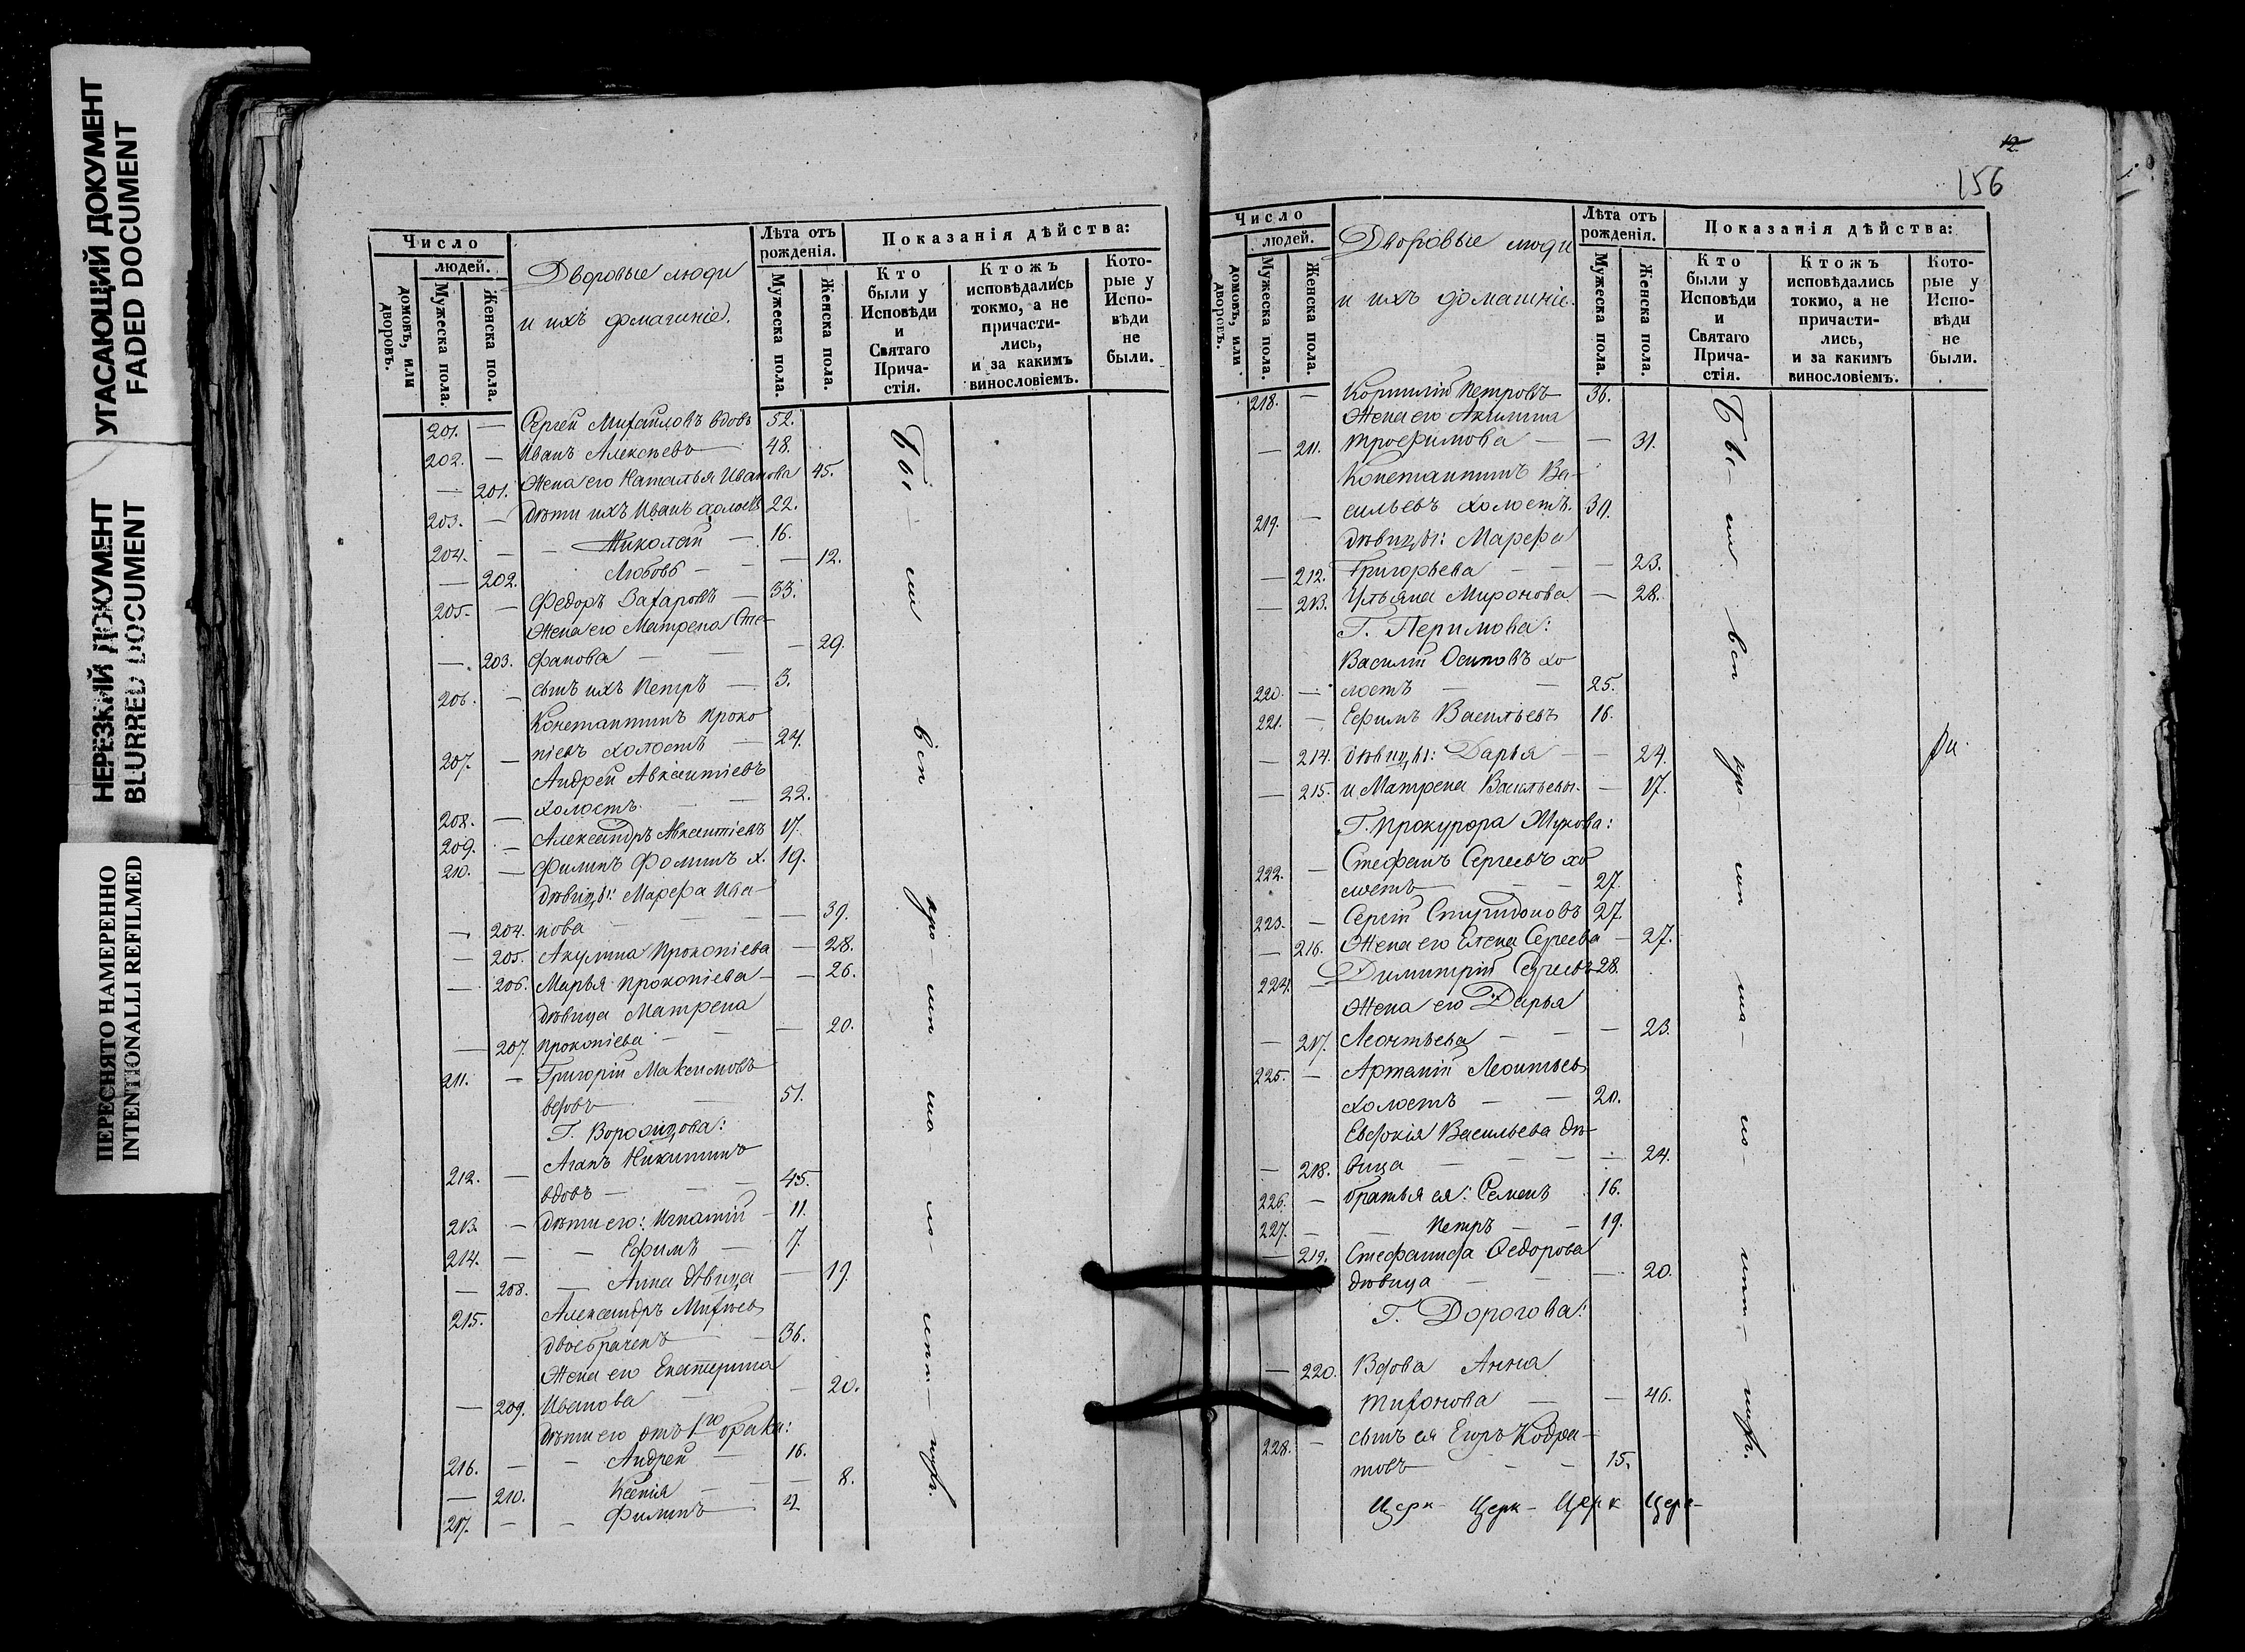 УГАСАЮЩИЙ ДОКУМЕНТ
FADED DOCUMENT
НЕРЕЗКИЙ ДОКУМЕНТ
BLURRED DOCUMENT
ПЕРЕСНЯТО НАМЕРЕННО
INTENTIONALLI REFILMED
Число
людей.
домовъ, или дворовъ.
Мужеска пола.
Женска пола.
Дворовые люди
и ихъ домашніе.
Лѣта отъ рожденія.
Мужеска пола.
Женска пола.
Показанія дѣйства:
Кто были у Исповѣди и Святаго Прича-стія.
Ктожъ исповѣдались токмо, а не причасти-лись, и за какимъ винословіемъ.
Кото-рые у Испо-вѣди не были.
201. — Сергей Михайловъ вдовъ 52.
202. — Иванъ Алексѣевъ 48.
— 201. Жена его Наталья Иванова 45.
203. — Дѣти ихъ Иванъ холостъ 22.
204. — Николай — 16.
— 202. Любовь — — 12.
205. — Федоръ Захаровъ — 33.
Жена его Матрена Сте-
— 203. фанова — — 29.
206. — сынъ ихъ Петръ — 3.
Константинъ Проко
207. — піевъ холостъ — 24.
Андрей Авксентіевъ
208. — холостъ — 22.
209. — Александръ Авксентіевъ 17.
210. — Филипъ Фоминъ х. 19.
Дѣвицы: Марфа Ива-
— 204. нова — 39.
— 205. Акулина Прокопіева — 28.
— 206. Марья Прокопіева — — 26.
Дѣвица Матрена
— 207. Прокопіева — — 20.
211. — Григорій Максимовъ
вдовъ — 51.
Агапъ Никитинъ
212. — вдовъ — — 45.
213 — Дѣти его: Игнатій — 11.
214. — — Ефимъ — 7.
— 208. — Анна дѣвица — 19.
215. Александръ Михѣевъ
двоебраченъ — 36.
Жена его Екатерина
— 209. Иванова — — 20.
Дѣти его отъ 1го брака:
216. — — Андрей — 16.
— 210. Ксенія — — 8.
217. — — Филипъ 4
Бы — ли
всп
12
156
Число
людей.
домовъ, или дворовъ.
Мужеска пола.
Женска пола.
Дворовые люди
и ихъ домашніе.
Лѣта отъ рожденія.
Мужеска пола.
Женска пола.
Показанія дѣйства:
Кто были у Исповѣди и Святаго Прича-стія.
Ктожъ исповѣдались токмо, а не причасти-лись, и за какимъ винословіемъ.
Кото-рые у Испо-вѣди не были.
218. — Корнилій Петровъ 36.
Жена его Акилина
— 211. Трофимова — — 31.
Константинъ Ва-
219. — сильевъ холостъ. 30.
Дѣвицы: Марфа
— 212. Григорьева — — 23.
— 213. Ульяна Миронова — 28.
Василій Осиповъ хо
220. — лостъ — — 25.
221. — Ефимъ Васильевъ 16.
— 214. дѣвицы: Дарья — — 24.
— 215. и Матрена Васильевы. — 17.
Г. Прокурора Жукова:
Стефанъ Сергеевъ хо
222. — лостъ — — 27.
223. — Сергій Спиридоновъ 27.
— 216. Жена его Елена Сергеева — 27.
224. — Димитрій Сергеевъ 28.
Жена его Дарья
— 217. Леонтьева — — — 23.
225. — Артемій Леонтьевъ
холостъ — — 20.
Евдокія Васильева дѣ-
— 218. вица — — — 24.
226. — братья ея: Семенъ 16.
227. — Петръ — — 19.
— 219. Стефанида Федорова
дѣвица — — — 20.
Г. Дорогова:
— 220. Вдова Анна
Тихонова — — 46.
228. — сынъ ея Егоръ Кодра-
товъ — — 15.
Церк- Церк- Церк Церк-
Бы — ли
всп